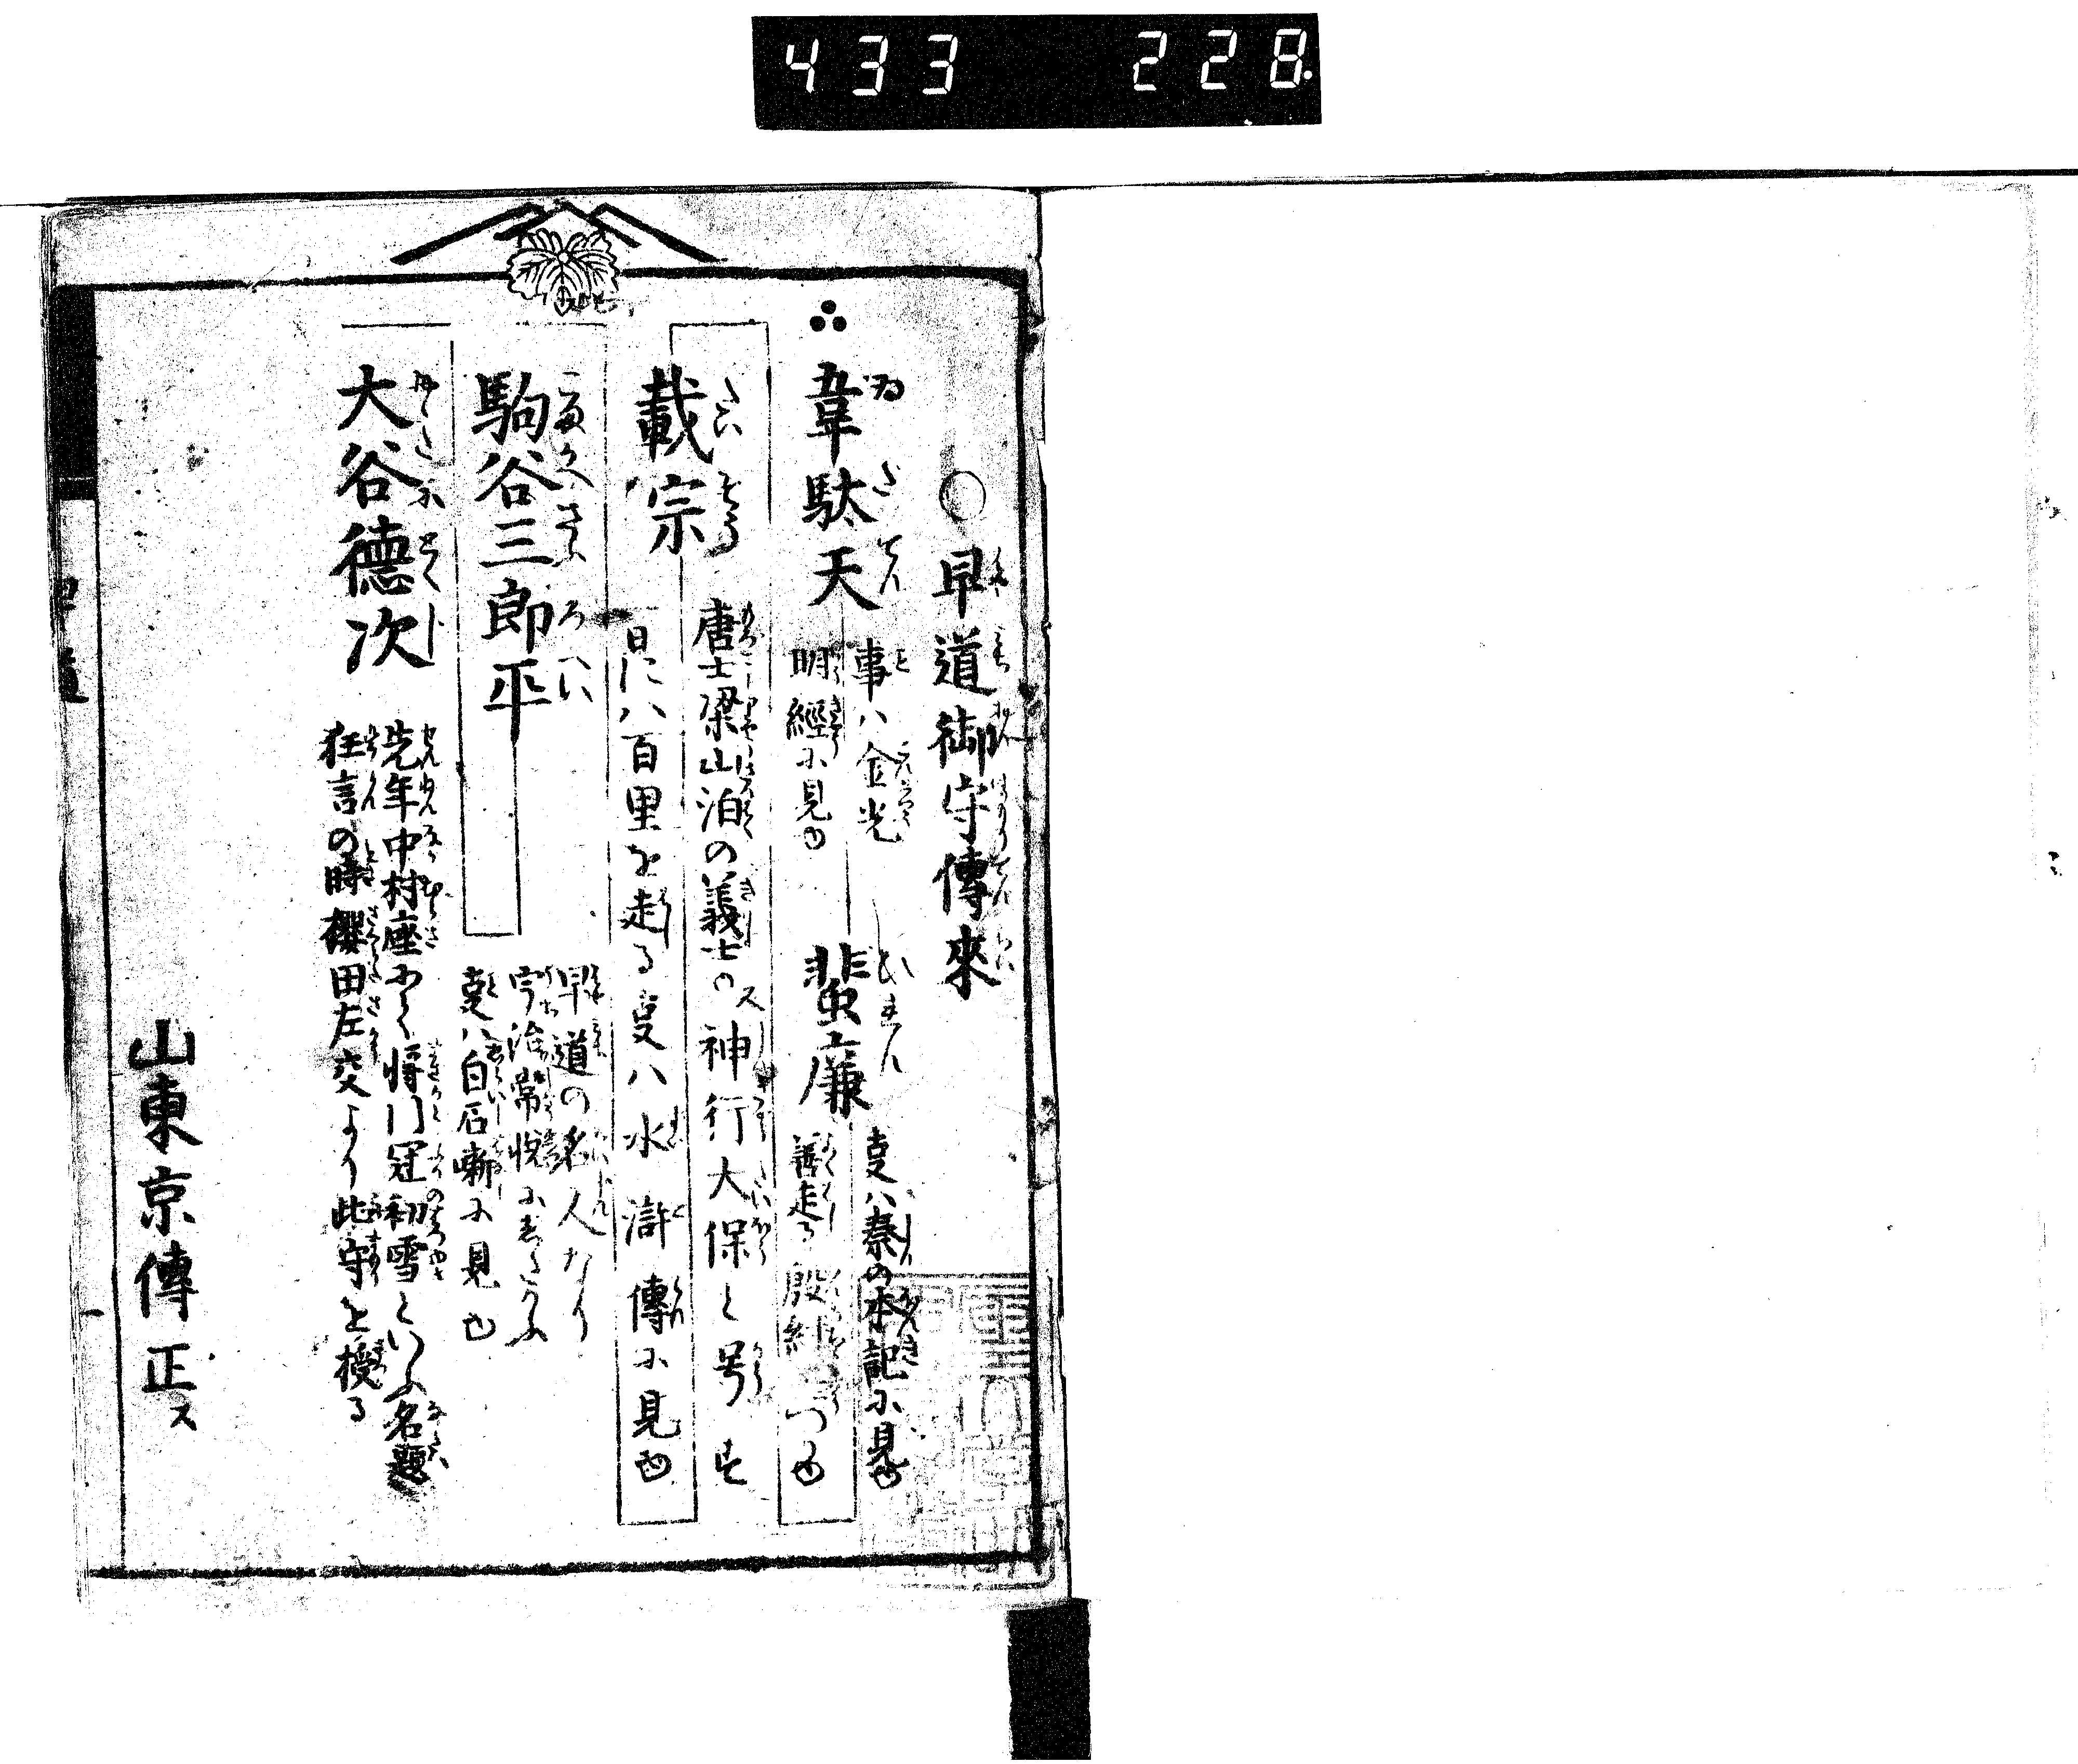 433 228.
○早道御守傳來
韋駄天
事ハ金光
明經に見ゆ
蜚廉
叓ハ秦の本記に見ゆ
善走る殷紂につかゆ
載宗
唐士梁山泊の義士の又神行大保と号す
日に八百里を走る叓ハ水滸傳に見ゆ
駒谷三郎平
早道の名人なり
宇治常悦にしたがふ
叓ハ白石噺に見ゆ
大谷德次
先年中村座にて將門冠初雪といふ名題
狂言の時櫻田左交より此守を授る
山東京傳正ス
早道
一